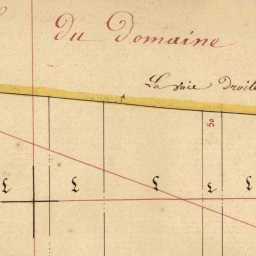 du Domaine
La voie droite
50
L L L L L